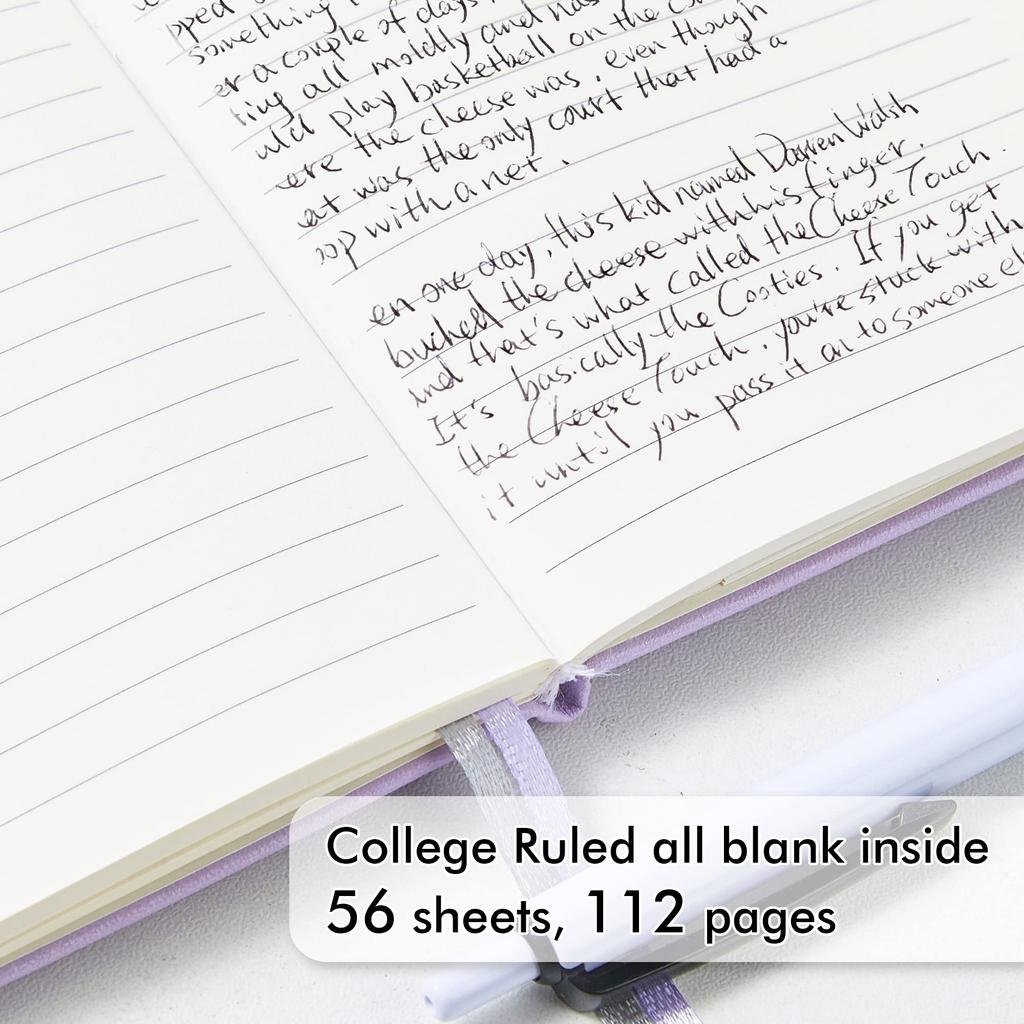 pped
something
er a couple of days
ting all moldly and nas
uld play basketball on the
ere the cheese was. even though
at was the only court that had a
oop with a net.
en one day, this kid named Darren Walsh
buched the cheese with his finger.
and that's what called the Cheese Touch.
It's basically the Cooties. If you get
the Cheese Touch. you're stuck with
it until you pass it on to someone el
College Ruled all blank inside
56 sheets, 112 pages